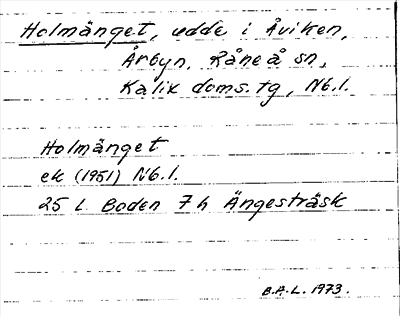 Holmänget, udde i Åviken,
Årbyn, Råneå sn,
Kalix doms. tg, Nb.l.
Holmänget
ek (1951) Nb.l.
25 L Boden 7 h Ängesträsk
B.A-L. 1973.